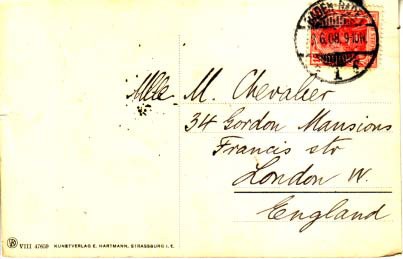 6.08. 9-10N.
1
Mlle M. Chevalier
34 Gordon Mansions
Francis str
London W.
England
VIII 47659 KUNSTVERLAG E. HARTMANN, STRASSBURG i. E.